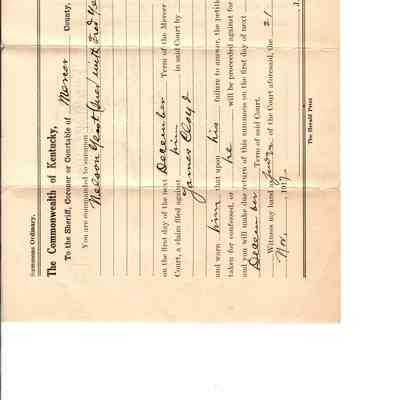 Summons Ordinary.
The Commonwealth of Kentucky,
To the Sheriff, Coroner or Constable of Mercer County,
You are commanded to summon
Nelson Yeast (Sues) with
on the first day of the next December Term of the Mercer
Court, a claim filed against him in said Court by
James Cloyd
and warn him that upon his failure to answer, the petiti
taken for confessed, or he will be proceeded against for
and you will make due return of this summons on the first day of next
December Term of said Court.
Witness my hand of the Court aforesaid, the 21
Nov. 191
The Herald Print